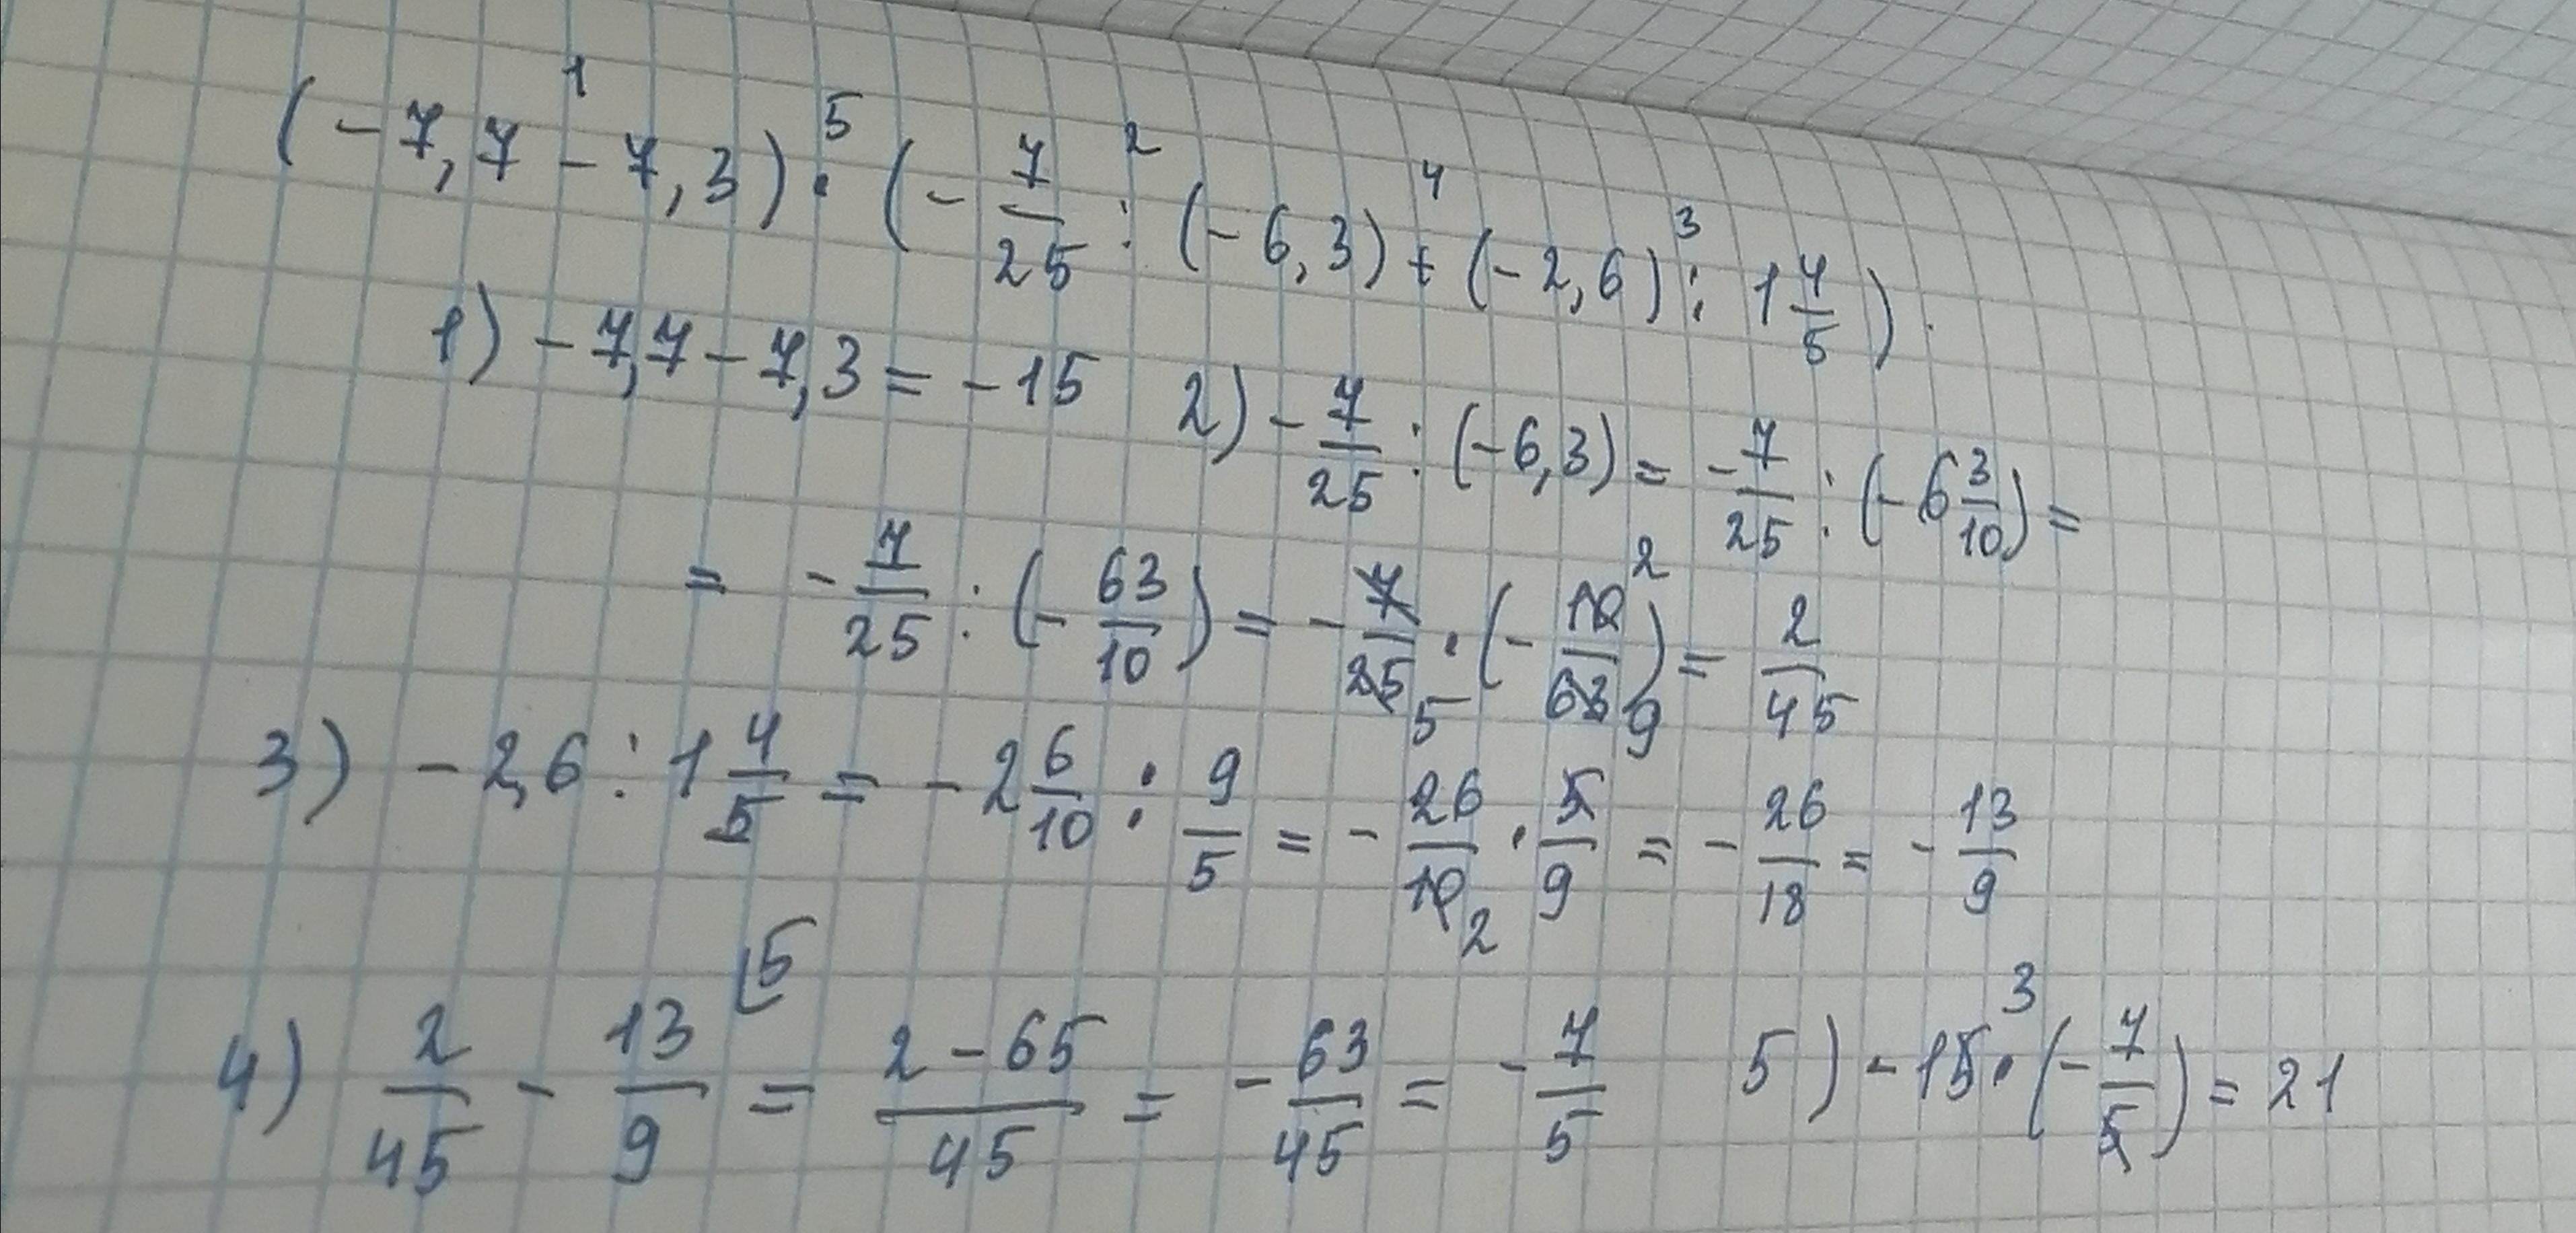 (-7,7 - 7,3) · (-7/25 : (-6,3) + (-2,6) : 1 4/5)
1) -7,7 - 7,3 = -15 2) -7/25 : (-6,3) = -7/25 : (-6 3/10) =
= -7/25 : (-63/10) = -7/25 · (-10/63) = 2/45
3) -2,6 : 1 4/5 = -2 6/10 : 9/5 = -26/10 · 5/9 = -26/18 = -13/9
4) 2/45 - 13/9 = 2-65/45 = -63/45 = -7/5 5) -15 · (-7/5) = 21